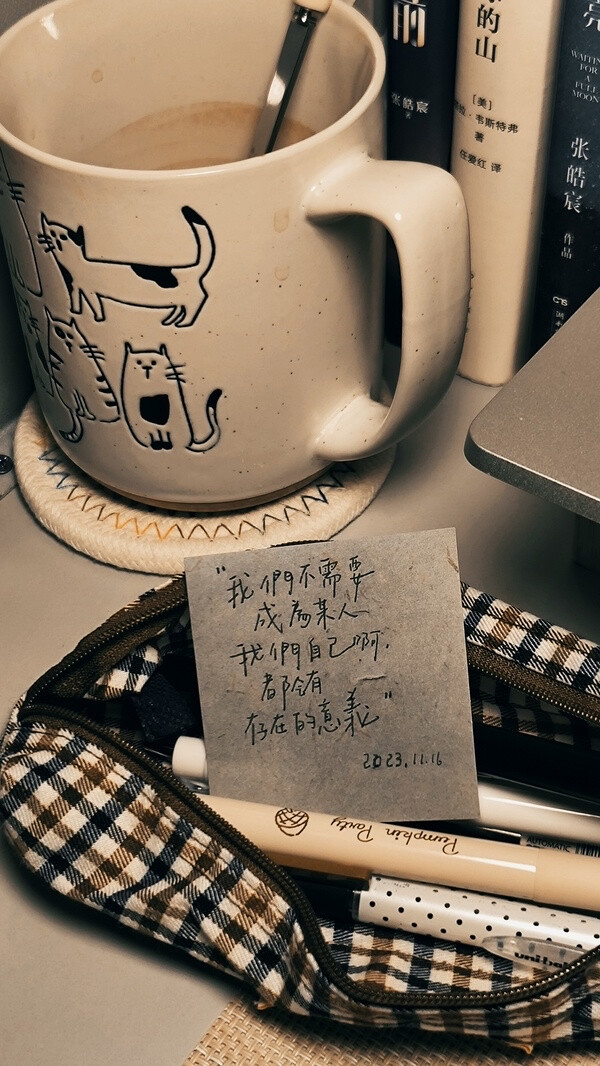 前
张皓宸
的山
[美]
·韦斯特弗
著
任爱红 译
亮
WAITING
FOR
A
FULL
MOON
张皓宸
作品
"我們不需要
成為某人
我們自己啊,
都会有
存在的意義"
2023.11.16
Pumpkin Party
AUTOMATIC
uni-bal